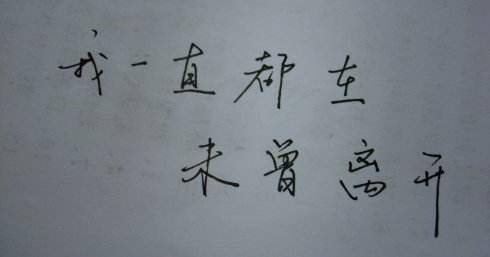 我一直都在
未曾离开